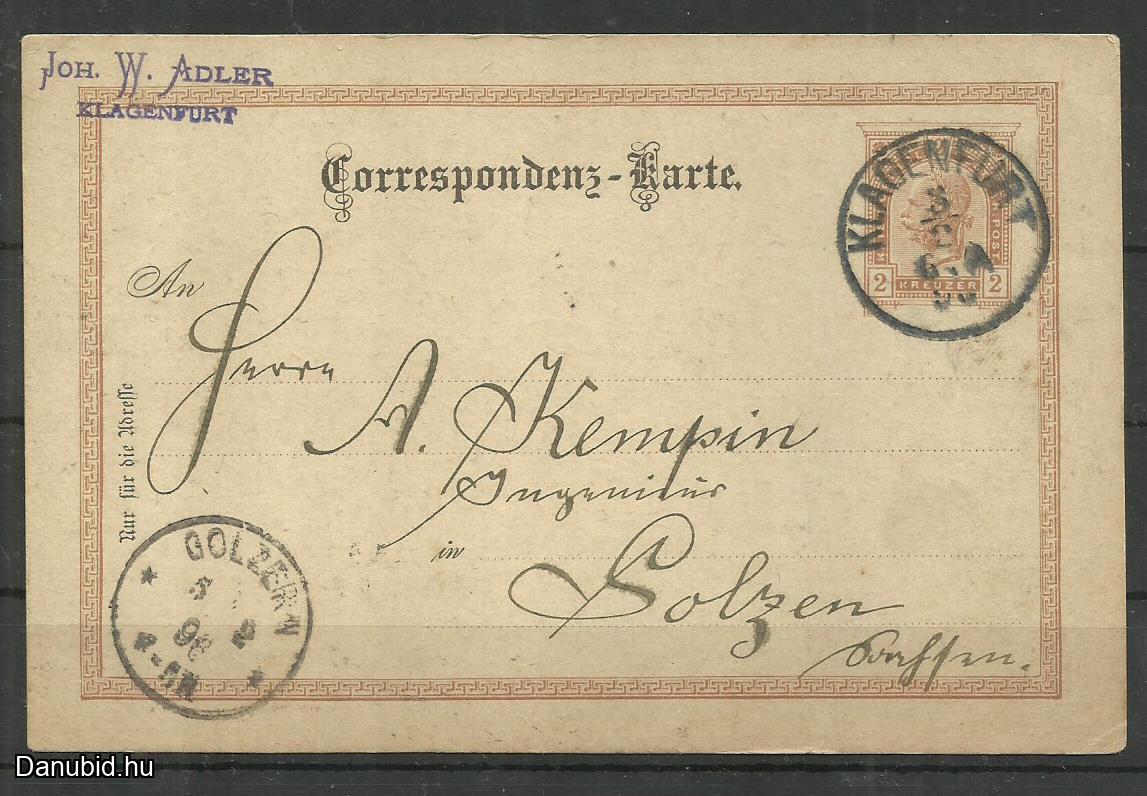 JOH. W. ADLER
KLAGENFURT
Correspondenz-Karte.
KLAGENFURT
6.
POST
2 KREUZER 2
An
Herrn
A. Kempin
Ingenieur
in
Golzern
Sachsen.
Nur für die Adresse
GOLZERN
5 2
96
Danubid.hu